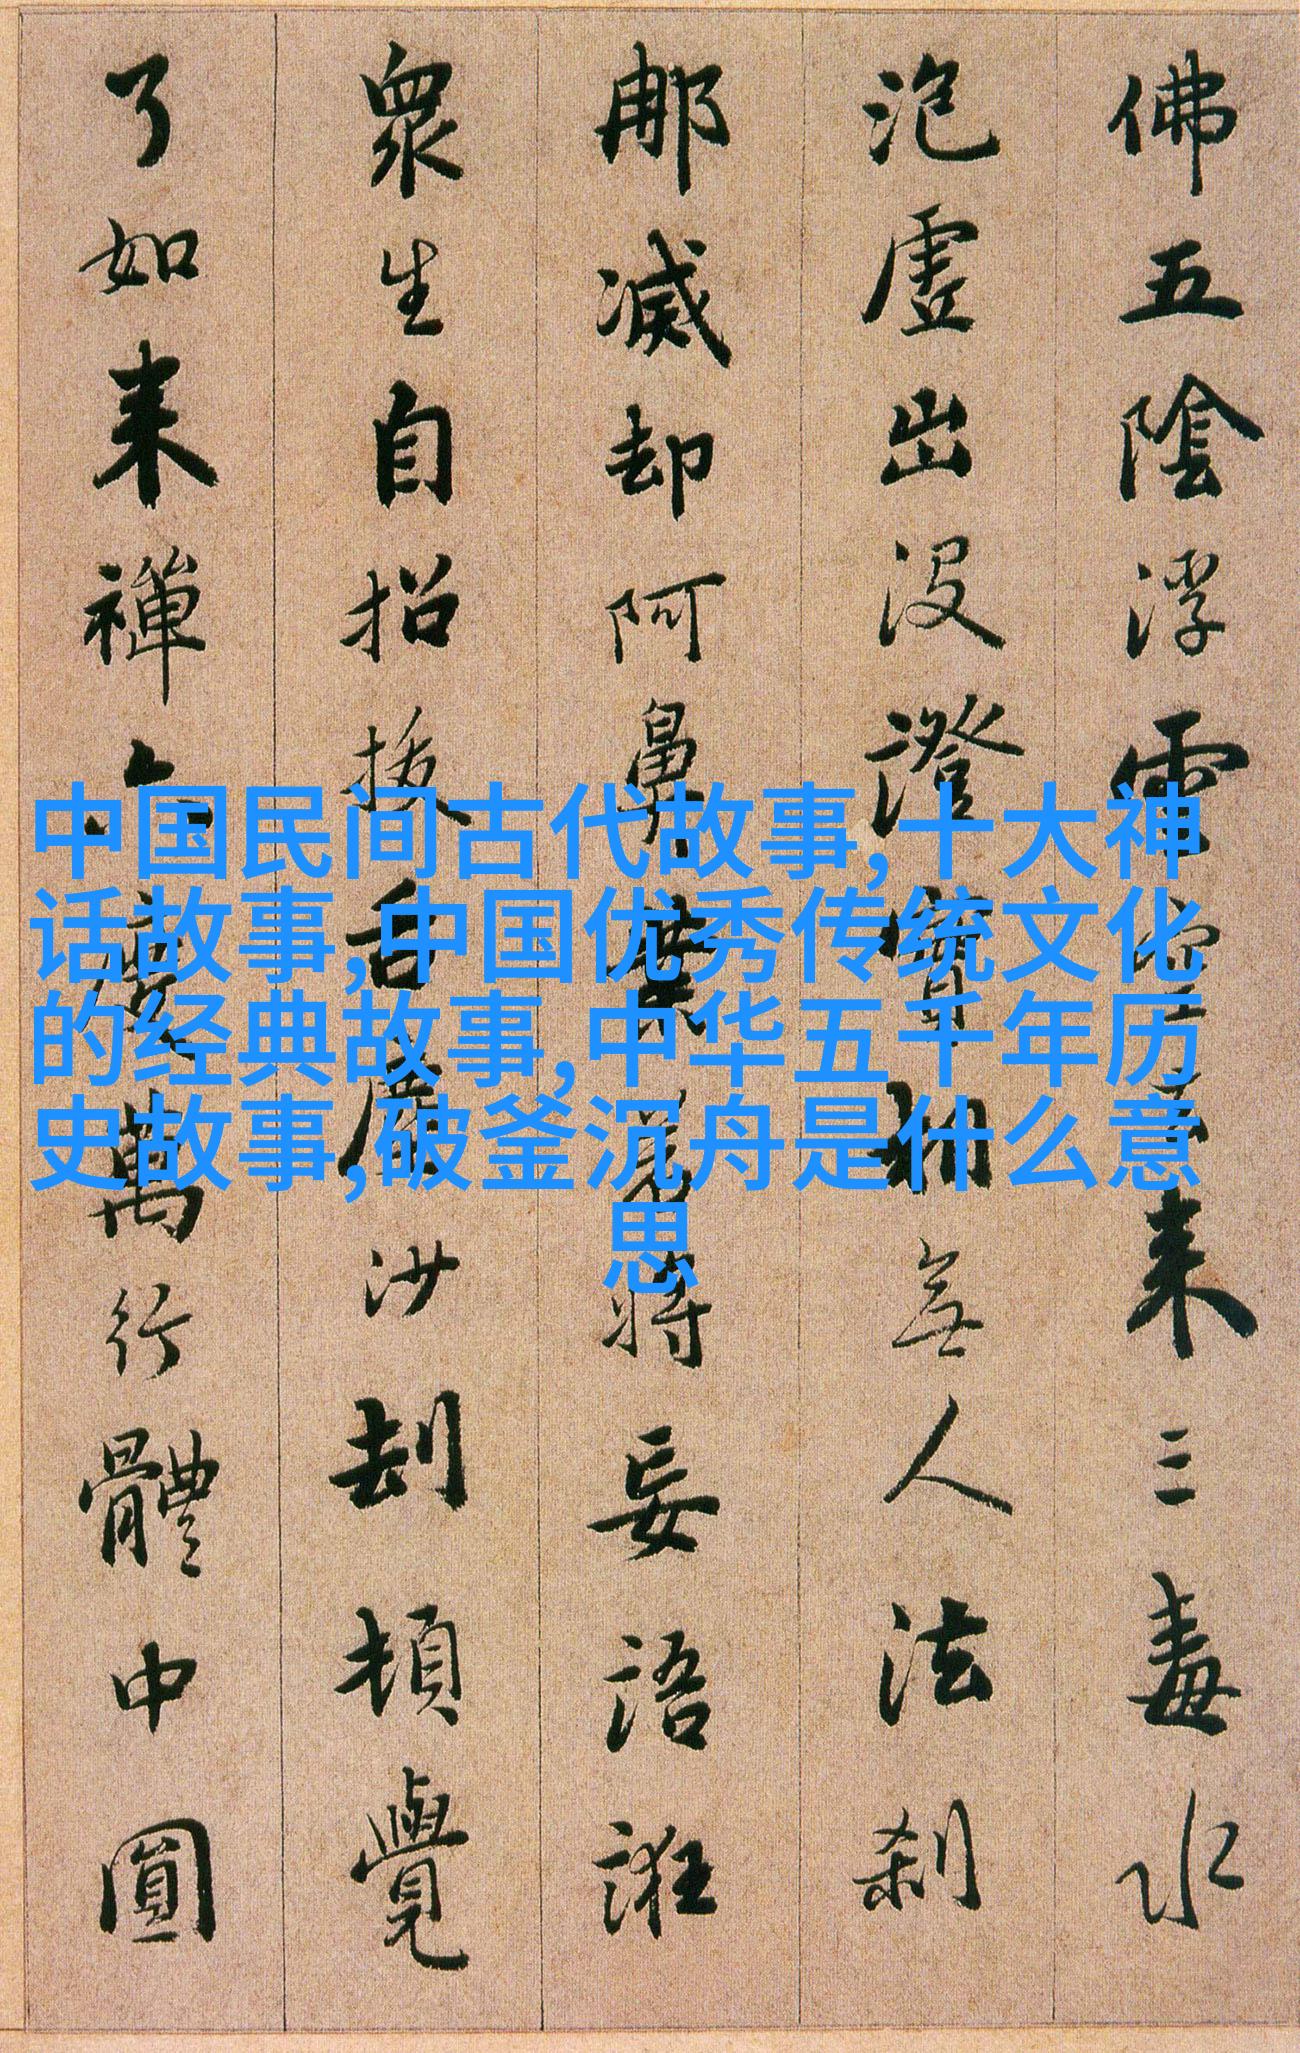 佛五陰浮雲空来三毒水
泡虛出沒證實相無人法刹
那滅却阿鼻業若將妄語誑
眾生自招拔舌塵沙劫頓覺
了如来禪六度萬行體中圓
中国民间古代故事,十大神
话故事,中国优秀传统文化
的经典故事,中华五千年历
史故事,破釜沉舟是什么意
思